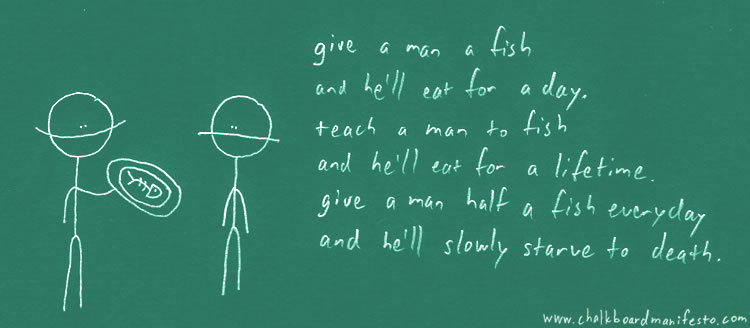 give a man a fish
and he'll eat for a day.
teach a man to fish
and he'll eat for a lifetime.
give a man half a fish everyday
and he'll slowly starve to death.
www.chalkboardmanifesto.com